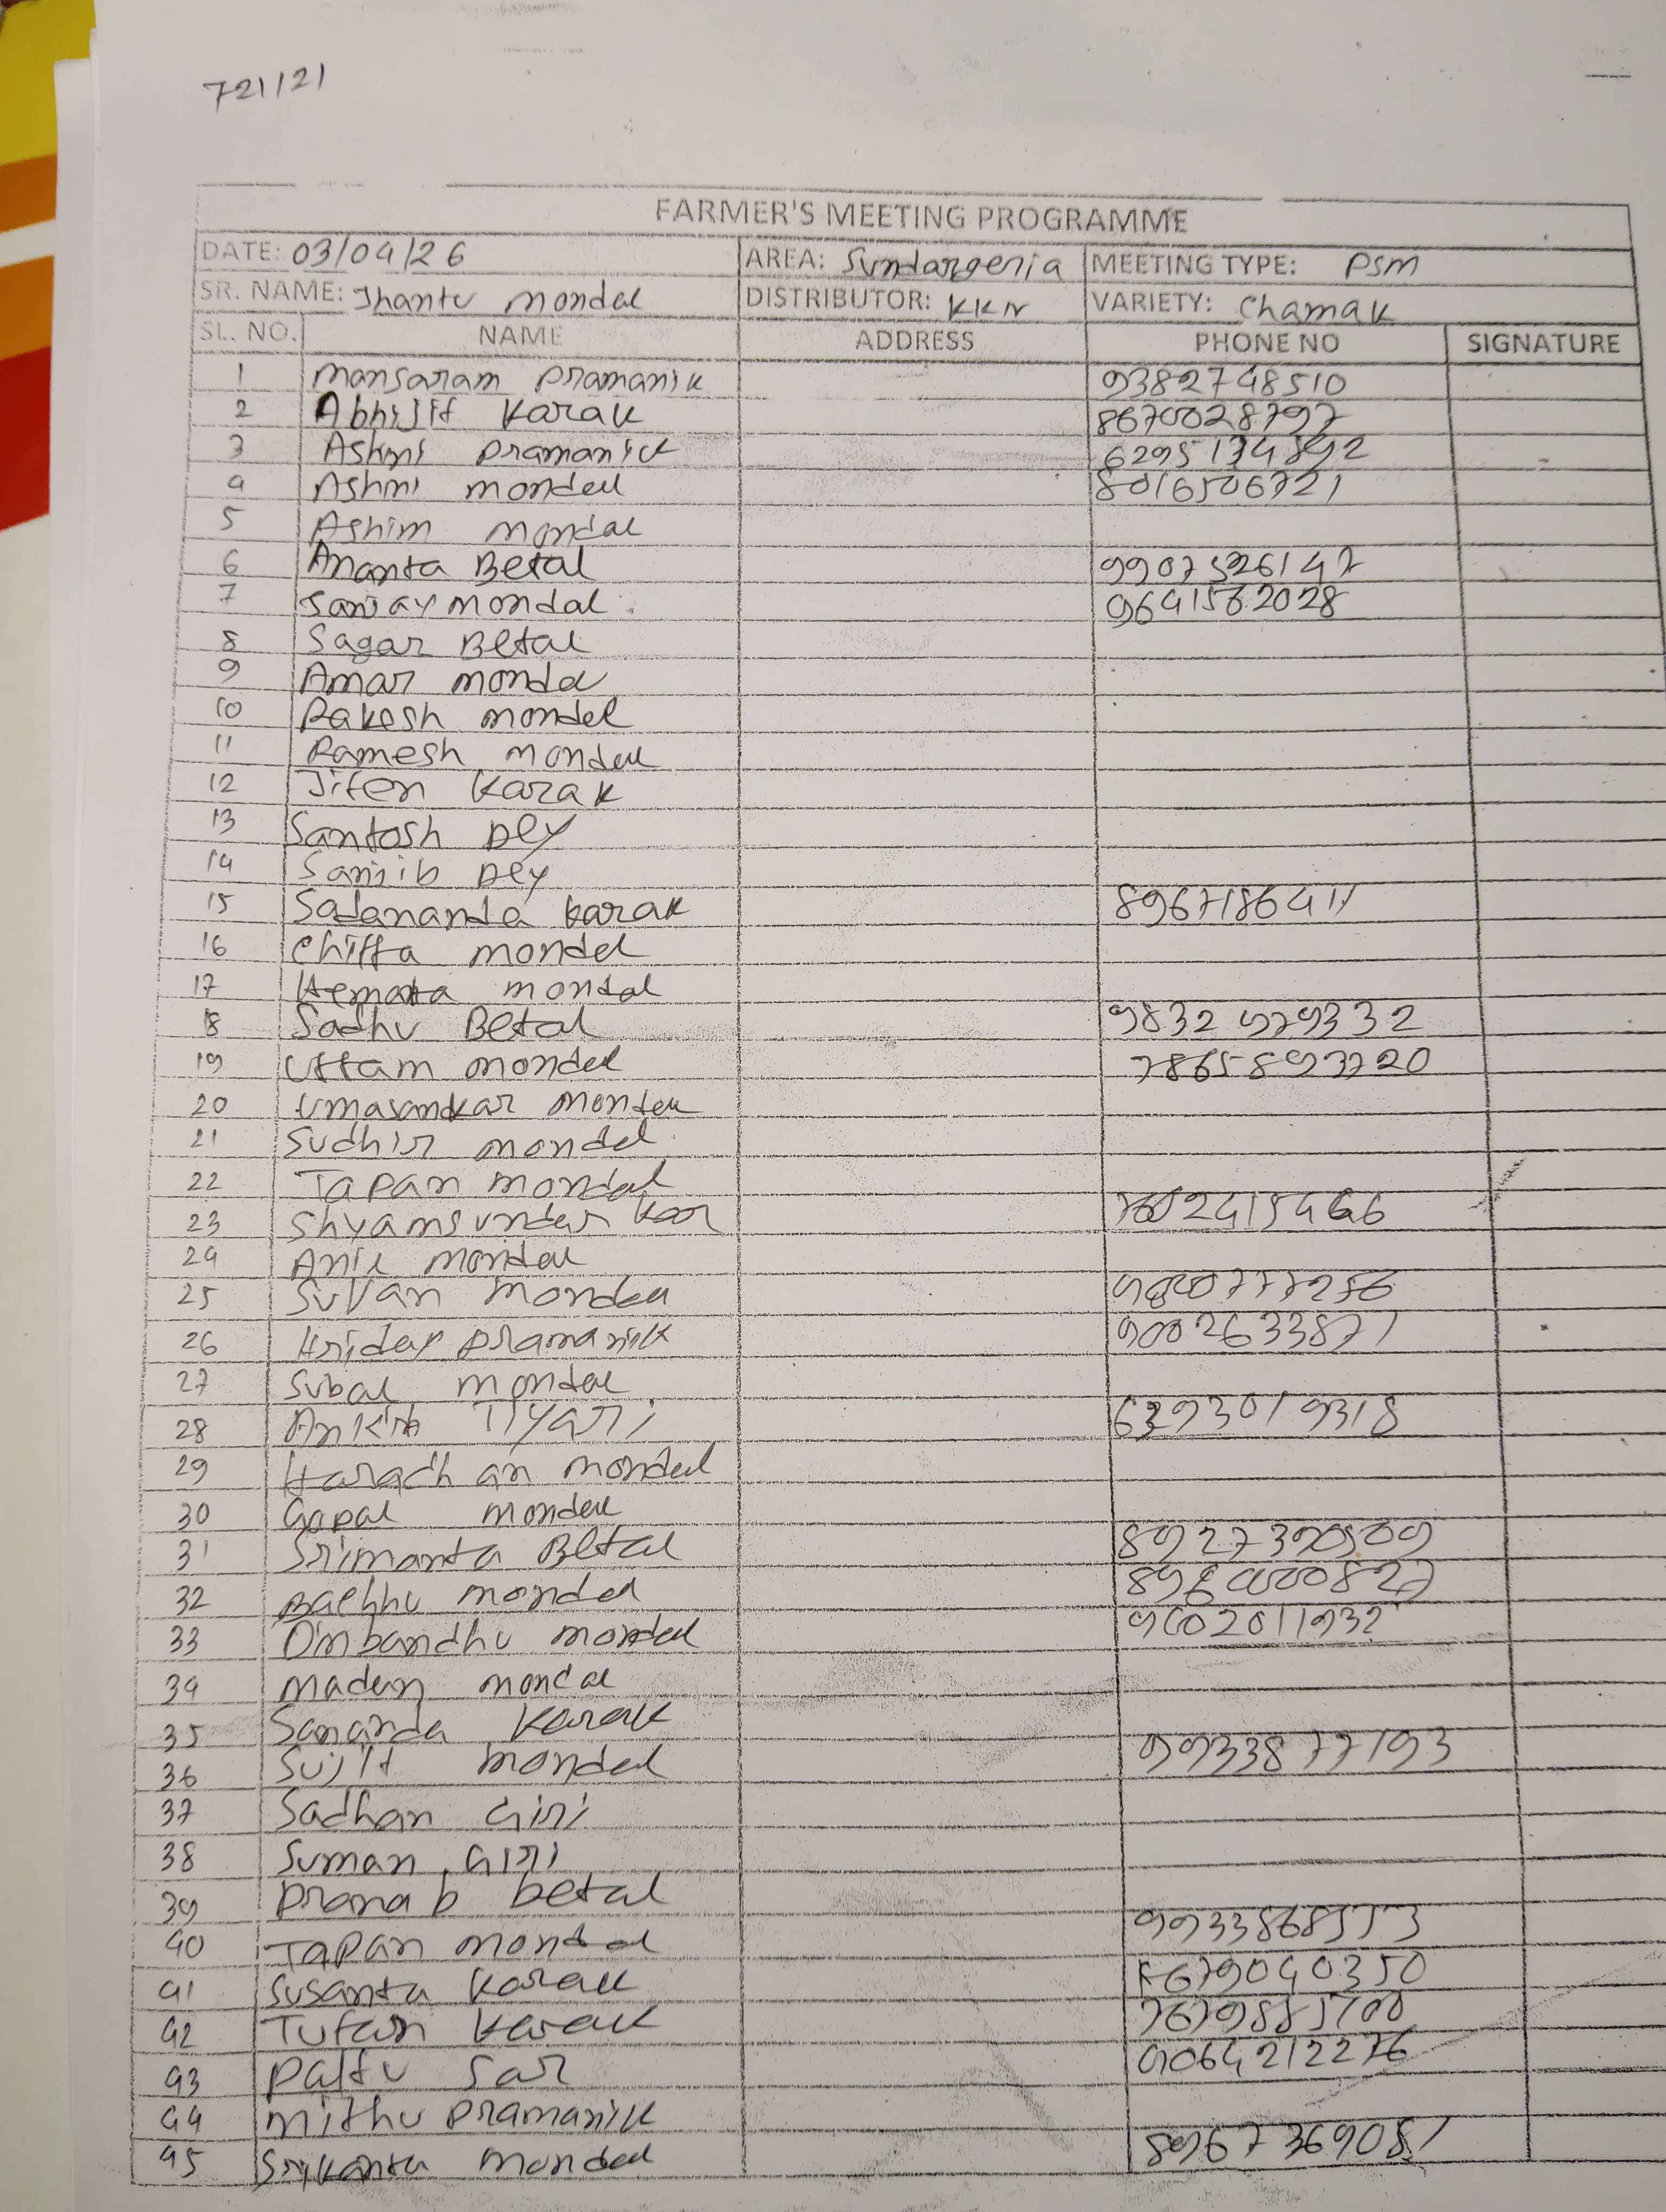 721121
FARMER'S MEETING PROGRAMME
DATE: 03/04/26 AREA: Sundargeria MEETING TYPE: PSM
SR. NAME: Jhantu Mondal DISTRIBUTOR: KKN VARIETY: Chamak
SL. NO. NAME ADDRESS PHONE NO SIGNATURE
1 Mansaram Pramanik 9382748510
2 Abhijit Karak 8670028797
3 Ashmi Pramanick
4 Ashmi Mondal 8016506721
5 Ashim Mondal
6 Ananta Betal 9907526147
7 Sanjay Mondal 9641562028
8 Sagar Betal
9 Amar Monda
10 Rakesh Mondal
11 Ramesh Mondal
12 Jiten Karak
13 Santosh Dey
14 Sanjib Dey
15 Sadananda Karak
16 Chitta Mondal
17 Hemanta Mondal
18 Sadhu Betal 9832979332
19 Uttam Mondal 7865893720
20 Umasankar Mondal
21 Sudhir Mondal
22 Tapan Mondal
23 Shyamsundar Kar
24 Anil Mondal
25 Mondal
26 Hriday Pramanik 9002633871
27 Subal Mondal
28 6293019318
29 Haradhan Mondal
30 Gopal Mondal
31 Srimanta Betal
32 Bachhu Mondal
33 Dinbandhu Mondal
34 Madan Mondal
35 Sananda Karak
36 Sujit Mondal 9933877193
37 Sadhan Giri
38 Suman Giri
39 Pranab betal
40 Tapan Mondal
41 Susanta Karak
42 Tutan Karak
43 Paltu Sar 9064212276
44 Mithu Pramanik
45 Srikanta Mondal 8967369081